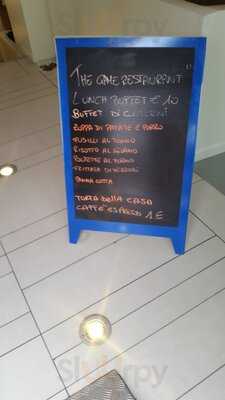 THE GAME RESTAURANT
LUNCH BUFFET € 10
BUFFET DI CONTORNI
ZUPPA DI PATATE E PORRO
FUSILLI AL TONNO
RISOTTO AL
POLPETTE AL FORNO
FRITTATA DI VERDURE
PANNA COTTA
TORTA DELLA CASA
CAFFÈ ESPRESSO 1€
Sluurpy